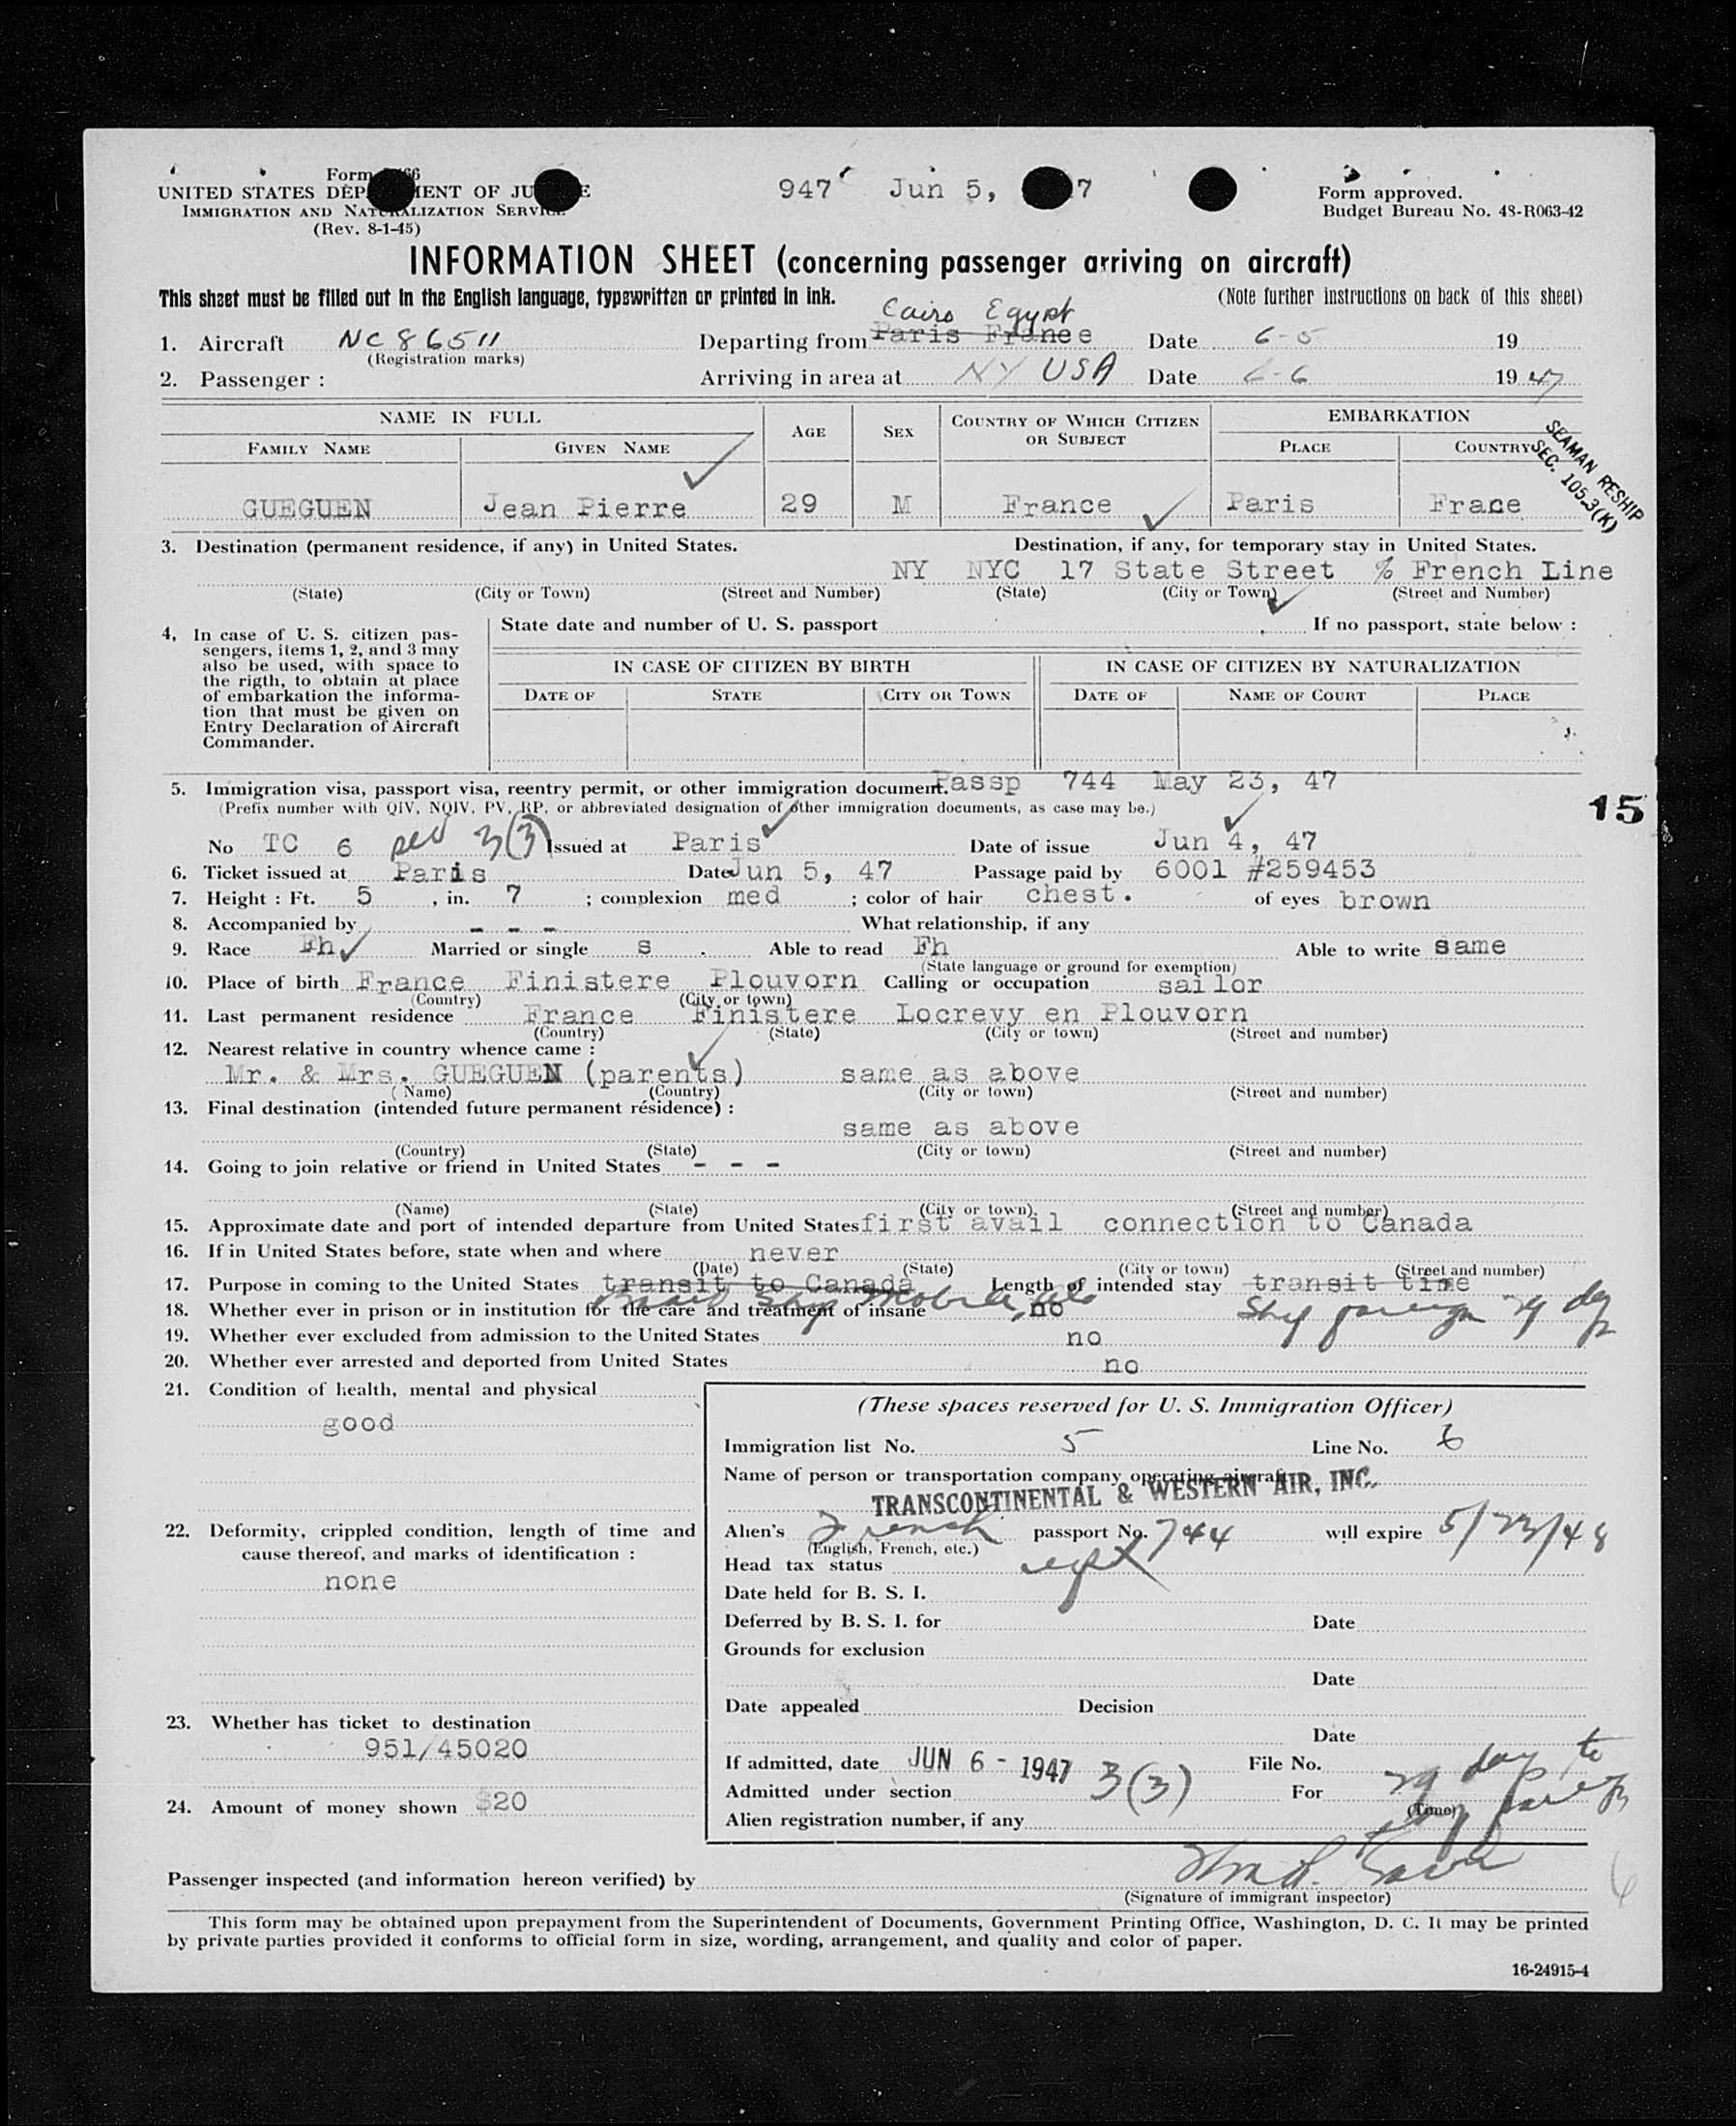 Form 66
UNITED STATES DEP MENT OF JU E
947 Jun 5, 7
Form approved.
IMMIGRATION AND NATURALIZATION SERVICE
Budget Bureau No. 43-R063-42
(Rev. 8-1-45)
INFORMATION SHEET (concerning passenger arriving on aircraft)
This sheet must be filled out in the English language, typewritten or printed in ink.
(Note further instructions on back of this sheet)
Cairo Egypt
1. Aircraft NC 86511 Departing from Paris France Date 6-5 19
(Registration marks)
2. Passenger : Arriving in area at NY USA Date 6-6 19 47
NAME IN FULL AGE SEX COUNTRY OF WHICH CITIZEN OR SUBJECT EMBARKATION
FAMILY NAME GIVEN NAME PLACE COUNTRY
SEAMAN RESHIP
SEC. 105.3(K)
GUEGUEN Jean Pierre 29 M France Paris Frace
3. Destination (permanent residence, if any) in United States. Destination, if any, for temporary stay in United States.
NY NYC 17 State Street % French Line
(State) (City or Town) (Street and Number) (State) (City or Town) (Street and Number)
4, In case of U. S. citizen pas-
sengers, items 1, 2, and 3 may
also be used, with space to
the rigth, to obtain at place
of embarkation the informa-
tion that must be given on
Entry Declaration of Aircraft
Commander.
State date and number of U. S. passport If no passport, state below :
IN CASE OF CITIZEN BY BIRTH IN CASE OF CITIZEN BY NATURALIZATION
DATE OF STATE CITY OR TOWN DATE OF NAME OF COURT PLACE
5. Immigration visa, passport visa, reentry permit, or other immigration document. Passp 744 May 23, 47
(Prefix number with QIV, NQIV, PV, RP, or abbreviated designation of other immigration documents, as case may be.)
15
No TC 6 3(3) Issued at Paris Date of issue Jun 4, 47
6. Ticket issued at Paris Date Jun 5, 47 Passage paid by 6001 #259453
7. Height : Ft. 5 , in. 7 ; complexion med ; color of hair chest. of eyes brown
8. Accompanied by - - - What relationship, if any
9. Race Fh Married or single s . Able to read Fh Able to write same
(State language or ground for exemption)
10. Place of birth France Finistere Plouvorn Calling or occupation sailor
(Country) (City or town)
11. Last permanent residence France Finistere Locrevy en Plouvorn
(Country) (State) (City or town) (Street and number)
12. Nearest relative in country whence came :
Mr. & Mrs. GUEGUEN (parents) same as above
(Name) (Country) (City or town) (Street and number)
13. Final destination (intended future permanent résidence) :
same as above
(Country) (State) (City or town) (Street and number)
14. Going to join relative or friend in United States - - -
(Name) (State) (City or town) (Street and number)
15. Approximate date and port of intended departure from United States first avail connection to Canada
16. If in United States before, state when and where never
(Date) (State) (City or town) (Street and number)
17. Purpose in coming to the United States transit to Canada Length of intended stay transit time
Ship Mobile, Ala
Ship foreign 29 days
18. Whether ever in prison or in institution for the care and treatment of insane no
19. Whether ever excluded from admission to the United States no
20. Whether ever arrested and deported from United States no
21. Condition of health, mental and physical
good
22. Deformity, crippled condition, length of time and
cause thereof, and marks of identification :
none
23. Whether has ticket to destination
951/45020
24. Amount of money shown $20
(These spaces reserved for U. S. Immigration Officer)
Immigration list No. 5 Line No. 6
Name of person or transportation company operating aircraft
TRANSCONTINENTAL & WESTERN AIR, INC.
Alien's French passport No. 744 will expire 5/23/48
(English, French, etc.)
Head tax status
Date held for B. S. I.
Deferred by B. S. I. for Date
Grounds for exclusion
Date
Date appealed Decision
Date
If admitted, date JUN 6 - 1947 File No.
Admitted under section 3(3) For 29 days to
(Time)
Alien registration number, if any
Passenger inspected (and information hereon verified) by
(Signature of immigrant inspector)
6
This form may be obtained upon prepayment from the Superintendent of Documents, Government Printing Office, Washington, D. C. It may be printed
by private parties provided it conforms to official form in size, wording, arrangement, and quality and color of paper.
16-24915-4